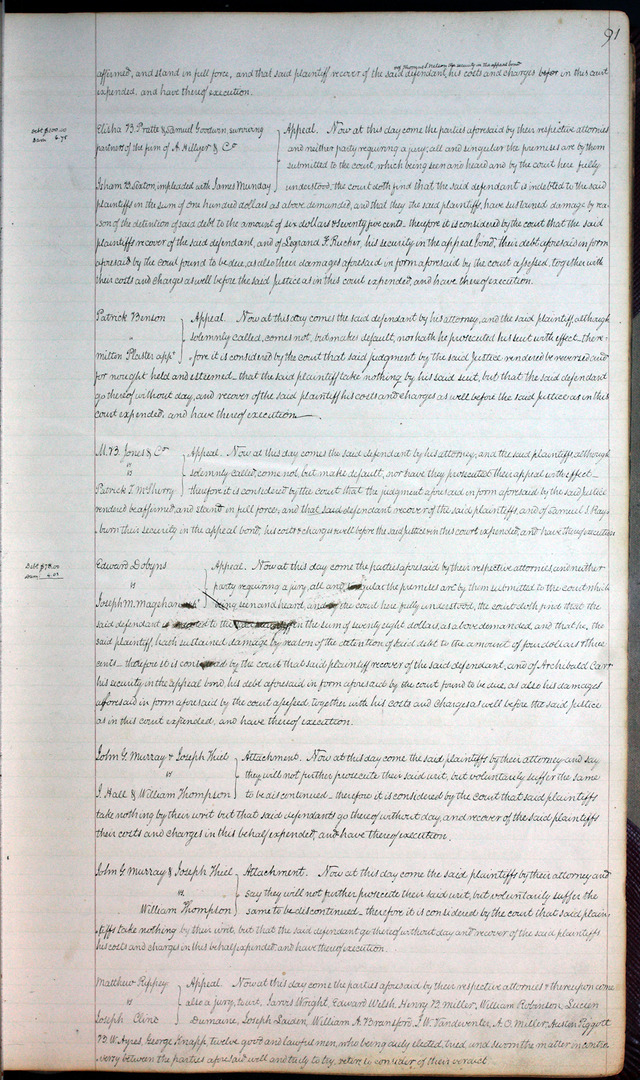 91
of Thommel Nelson the security in the appeal bond
affirmed, and stand in full force, and that said plaintiff recover of the said defendant, his costs and charges in this court
expended, and have thereof execution.
Debt $100.00
Dam 6.75
Elisha B. Pratte & Samuel Goodwin, surviving
partners of the firm of A. Hillyer & Co
vs
Isham B. Sexton, impleaded with James Munday
Appeal. Now at this day come the parties aforesaid by their respective attornies
and neither party requiring a jury, all and singular the premises are by them
submitted to the court, which being seen and heard and by the court here fully
understood, the court doth find that the said defendant is indebted to the said
plaintiffs in the sum of one hundred dollars as above demanded, and that they the said plaintiffs, have sustained damage by rea-
son of the detention of said debt to the amount of six dollars & seventy five cents. therefore it is considered by the court that the said
plaintiffs recover of the said defendant, and of Legrand F. Rucher, his security in the appeal bond, their debt aforesaid in form
aforesaid by the court found to be due, as also their damages aforesaid in form aforesaid by the court assessed, together with
their costs and charges as well before the said Justice as in this court expended, and have thereof execution.
Patrick Benson
vs
Milton Plaster appt
Appeal. Now at this day comes the said defendant by his attorney, and the said plaintiff although
solemnly called, comes not, but makes default, nor hath he prosecuted his suit with effect_there-
fore it is considered by the court that said judgment by the said Justice rendered be reversed and
for nought held and esteemed_that the said plaintiff take nothing by his said suit, but that the said defendant
go thereof without day, and recover of the said plaintiff his costs and charges as well before the said Justice as in this
court expended, and have thereof execution
M. B. Jones & Co
vs
Patrick T. McSherry
Appeal. Now at this day comes the said defendant by his attorney, and the said plaintiffs although
solemnly called, come not, but make default, nor have they prosecuted their appeal with effect_
therefore it is considered by the court that the judgment aforesaid in form aforesaid by the said Justice
rendered be affirmed, and stand in full force, and that said defendant recover of the said plaintiffs, and of Samuel S. Ray-
burn their security in the appeal bond, his costs & charges as well before the said Justice as in this court expended, and have thereof execution
Debt $78.00
Dam 4.03
Edward Dobyns
vs
Joseph M. Magehan
Appeal. Now at this day come the parties aforesaid by their respective attornies, and neither
party requiring a jury, all and singular the premises are by them submitted to the court which
being seen and heard, and by the court here fully understood, the court doth find that the
said defendant is indebted to the said plaintiff in the sum of twenty eight dollars, as above demanded, and that he, the
said plaintiff, hath sustained damage by reason of the detention of said debt to the amount of four dollars & three
cents_therefore it is considered by the court that said plaintiff recover of the said defendant, and of Archibald Carr
his security in the appeal bond, his debt aforesaid in form aforesaid by the court found to be due, as also his damages
aforesaid in form aforesaid by the court assessed, together with his costs and charges as well before the said Justice
as in this court expended, and have thereof execution.
John G. Murray & Joseph Thiel
vs
J. Hall & William Thompson
Attachment. Now at this day come the said plaintiffs by their attorney and say
they will not further prosecute their said writ, but voluntarily suffer the same
to be discontinued_therefore it is considered by the court that said plaintiffs
take nothing by their writ but that said defendants go thereof without day, and recover of the said plaintiffs
their costs and charges in this behalf expended, and have thereof execution.
John G. Murray & Joseph Thiel
vs
William Thompson
Attachment. Now at this day come the said plaintiffs by their attorney and
say they will not further prosecute their said writ, but voluntarily suffer the
same to be discontinued_therefore it is considered by the court that said plain-
tiffs take nothing by their writ, but that the said defendant go thereof without day and recover of the said plaintiffs
his costs and charges in this behalf expended, and have thereof execution.
Matthew Rippey
vs
Joseph Cline
Appeal. Now at this day come the parties aforesaid by their respective attornies & thereupon come
also a jury, towit, Jarvis Wright, Edward Welsh, Henry B. Miller, William Robinson, Lucien
Dumaine, Joseph Laiden, William A. Bransford, J. W. Vandeventer, A. O. Miller, Austin Piggott
B. W. Ayres, George Knapp, twelve good and lawful men, who being duly elected, tried, and sworn the matter in contro-
versy between the parties aforesaid well and truly to try, retire to consider of their verdict